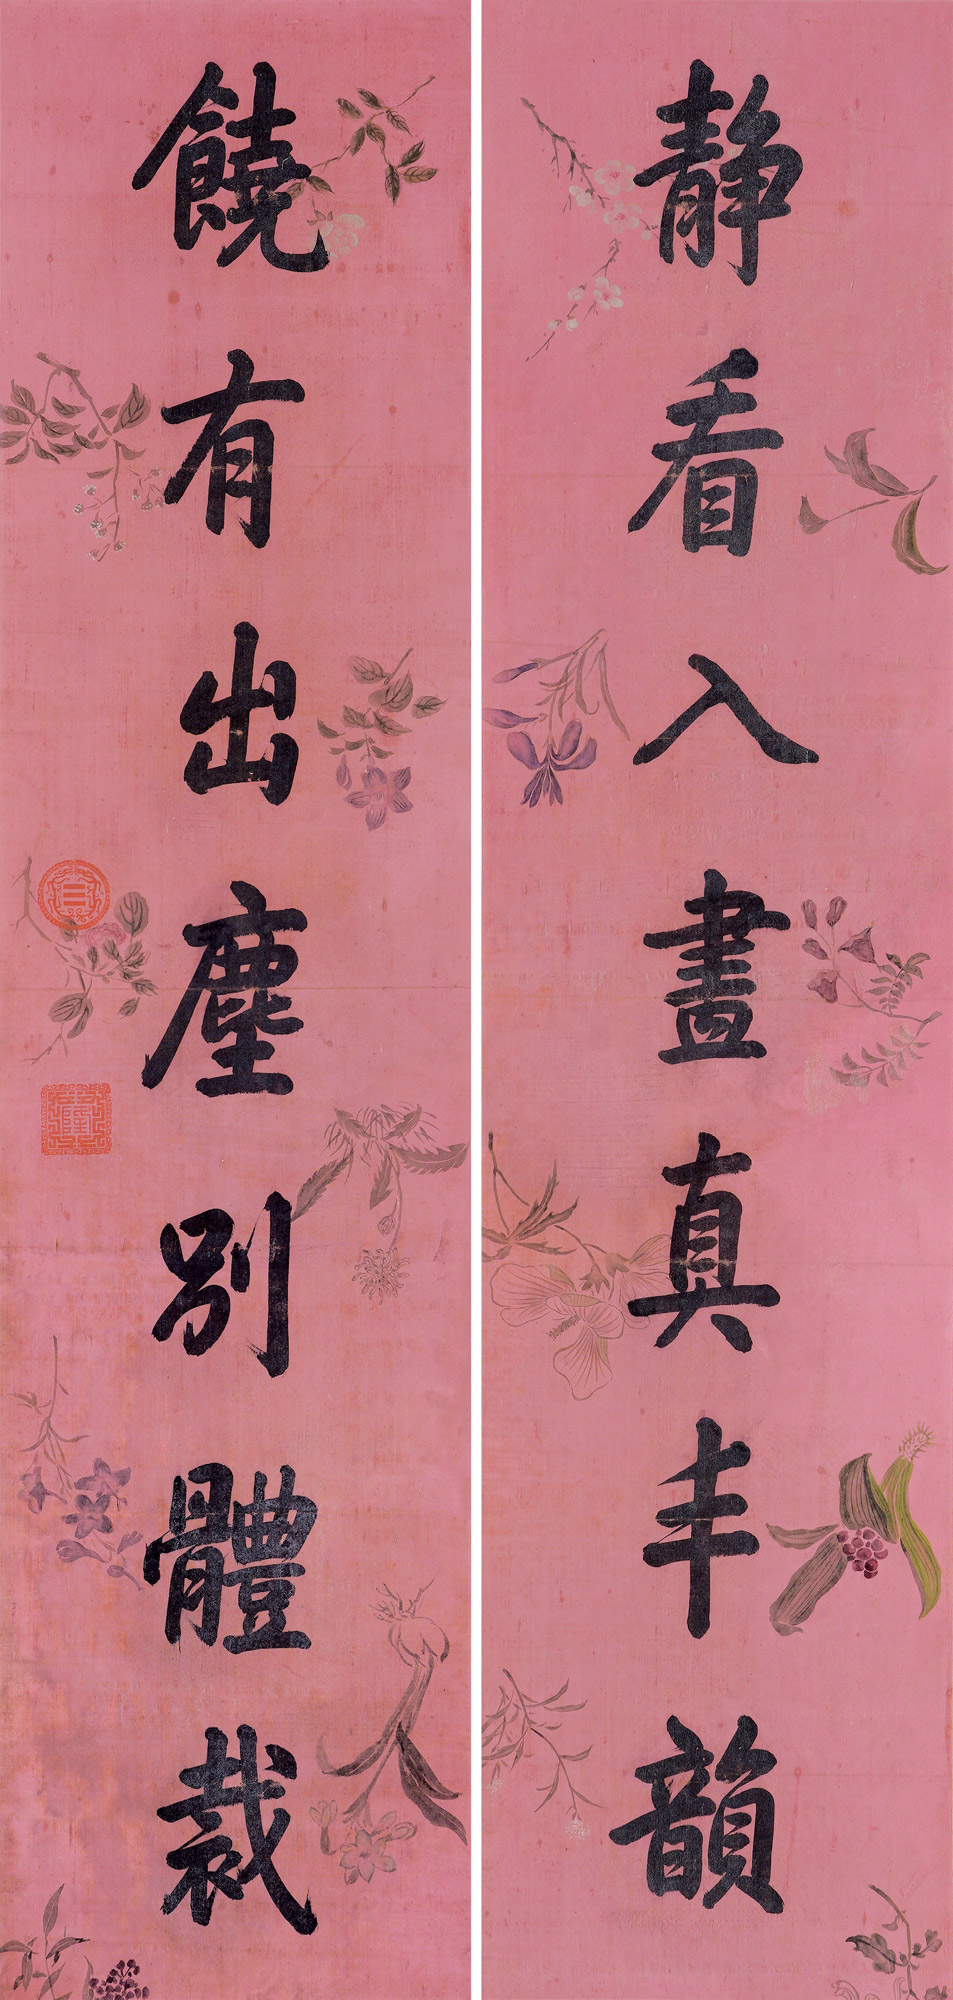 静看入畫真丰韻
饒有出塵別體裁